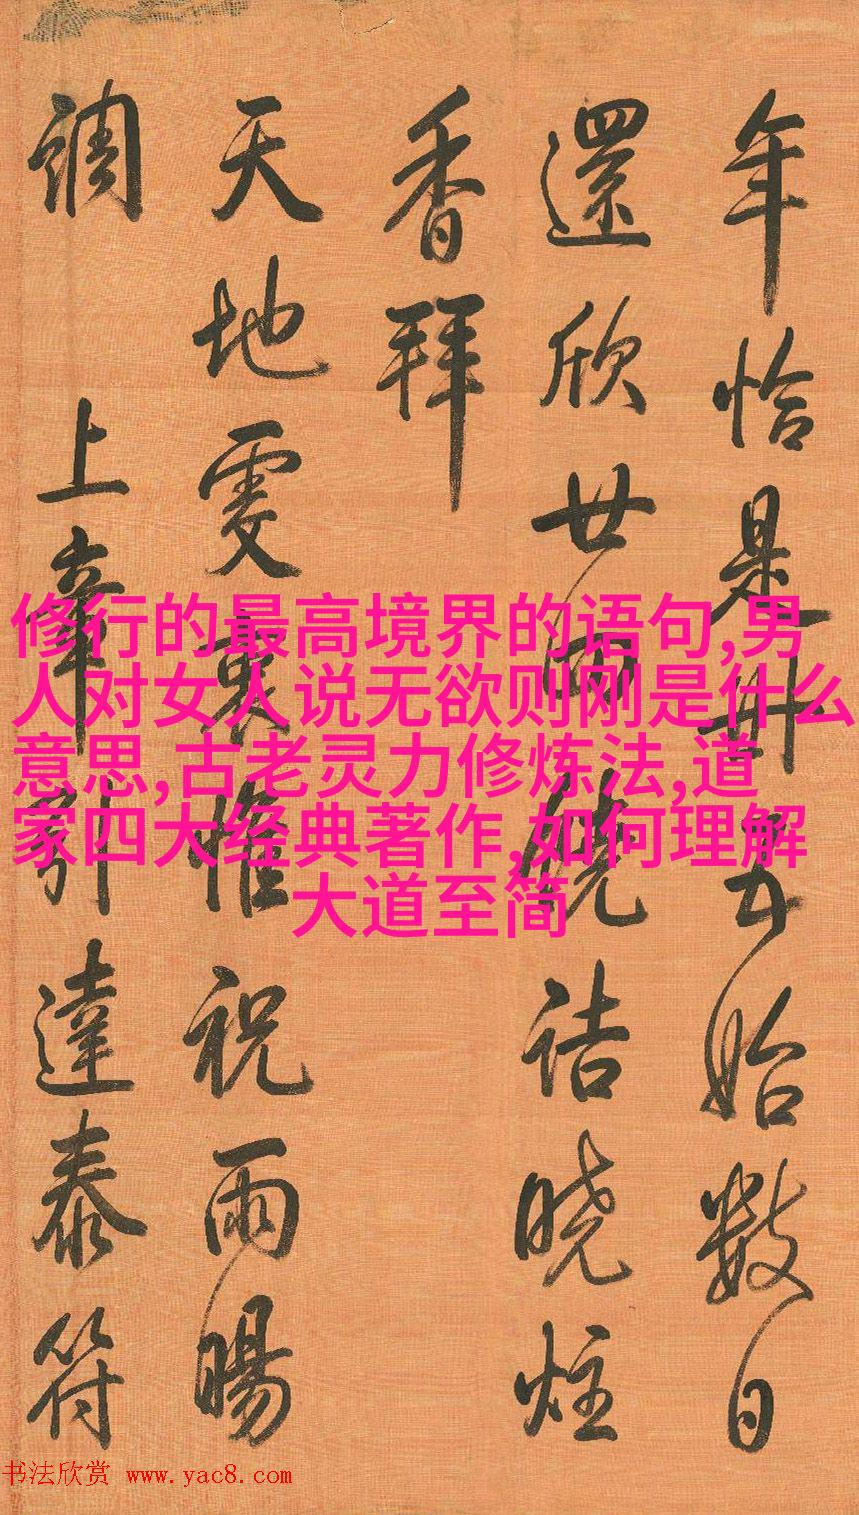 年恰是卅五始數日
還欣廿四繞詰曉炷
香拜
天地虔衷惟祝雨暘
調 上章引達泰符
修行的最高境界的语句,男
人对女人说无欲则刚是什么
意思,古老灵力修炼法,道
家四大经典著作,如何理解
大道至简
书法欣赏 www.yac8.com